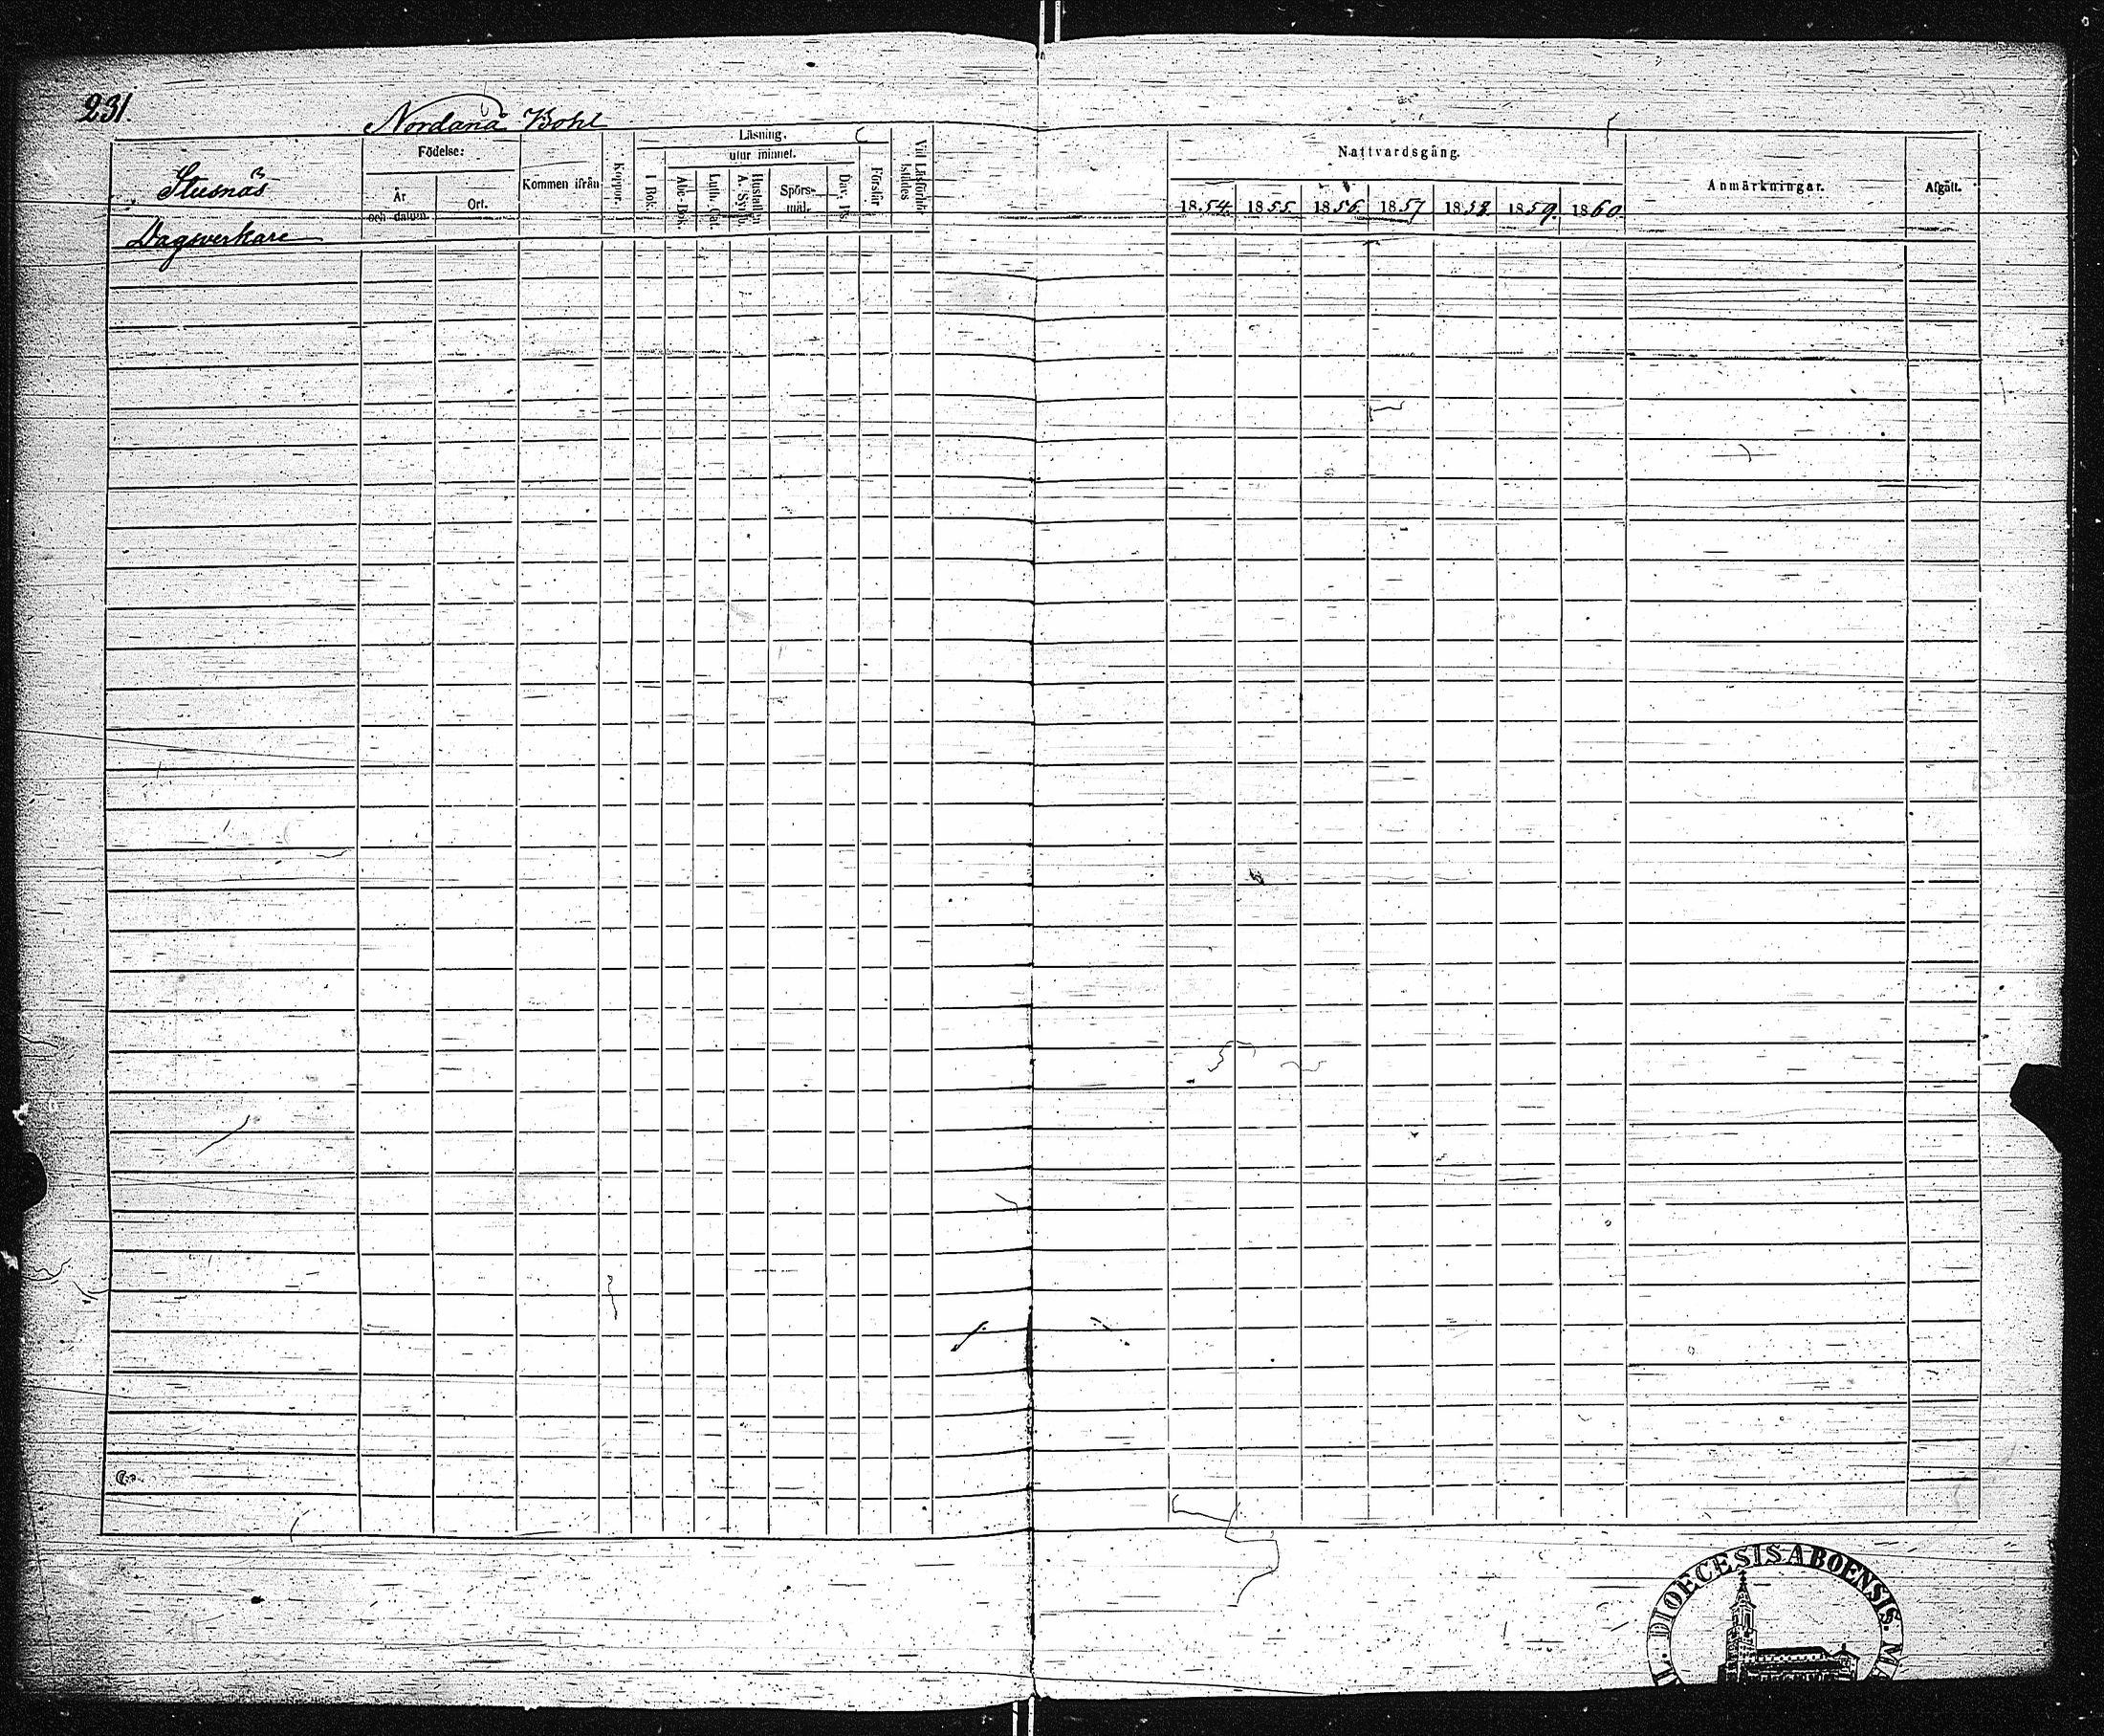 231.
Nordanå Bohl
Stusnäs
Dagsverkare
Födelse:
År
och datum.
Ort.
Kommen ifrån
Koppor.
Läsning.
utur minnet.
I Bok.
Abc-Bok.
Luth. Cat.
Hustaflan
A. Symb.
Spörs-
mål.
Dav. Ps.
Förstår
Vid Läsförhör
tillstädes
Nattvardsgång.
1854. 1855. 1856. 1857 1858. 1859. 1860.
Anmärkningar.
Afgått.
DIOECESIS ABOENSIS. M